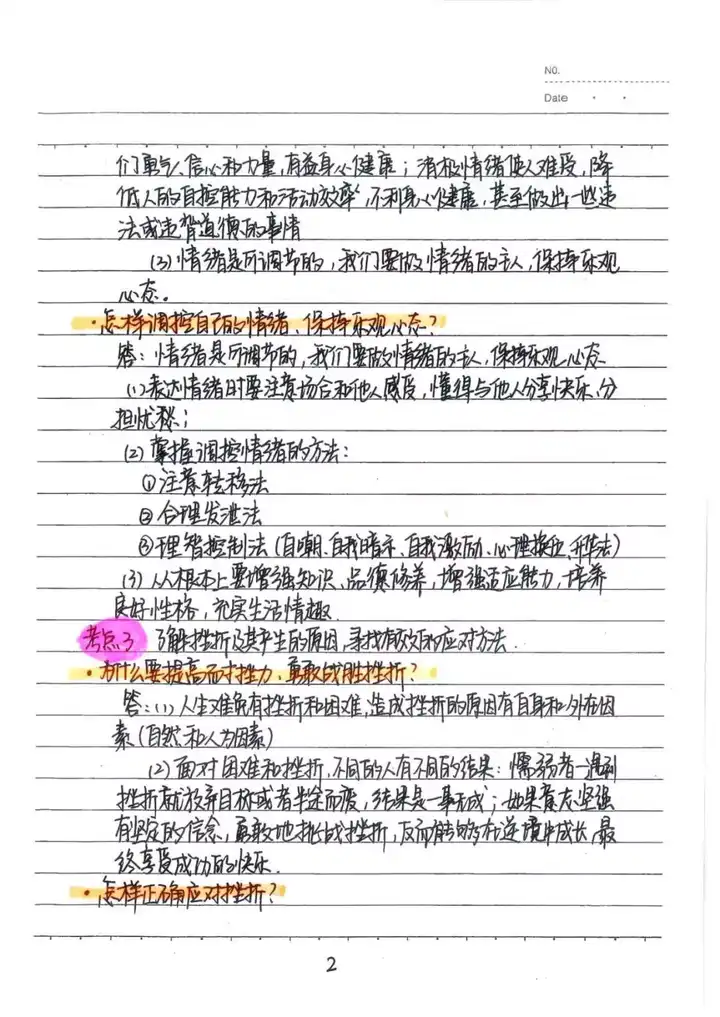 NO.
Date
们勇气、信心和力量,有益身心健康;消极情绪使人难受,降
低人的自控能力和活动效率,不利身心健康,甚至做出一些违
法或违背道德的事情
(3)情绪是可调节的,我们要做情绪的主人,保持乐观
心态。
·怎样调控自己的情绪、保持乐观心态?
答:情绪是可调节的,我们要做情绪的主人,保持乐观心态
(1)表达情绪时要注意场合和他人感受,懂得与他人分享快乐、分
担忧愁;
(2)掌握调控情绪的方法:
①注意转移法
②合理发泄法
③理智控制法(自嘲、自我暗示、自我激励、心理换位、升华法)
(3)从根本上要增强知识、品德修养,增强适应能力,培养
良好性格,充实生活情趣.
考点3 了解挫折及其产生的原因,寻找有效的应对方法.
·为什么要提高面对挫力、勇敢战胜挫折?
答:(1)人生难免有挫折和困难,造成挫折的原因有自身和外在因
素(自然和人为因素)
(2)面对困难和挫折,不同的人有不同的结果:懦弱者一遇到
挫折就放弃目标或者半途而废,结果是一事无成;如果意志坚强
有坚定的信念,勇敢地挑战挫折,反而能够在逆境中成长,最
终享受成功的快乐.
·怎样正确应对挫折?
2